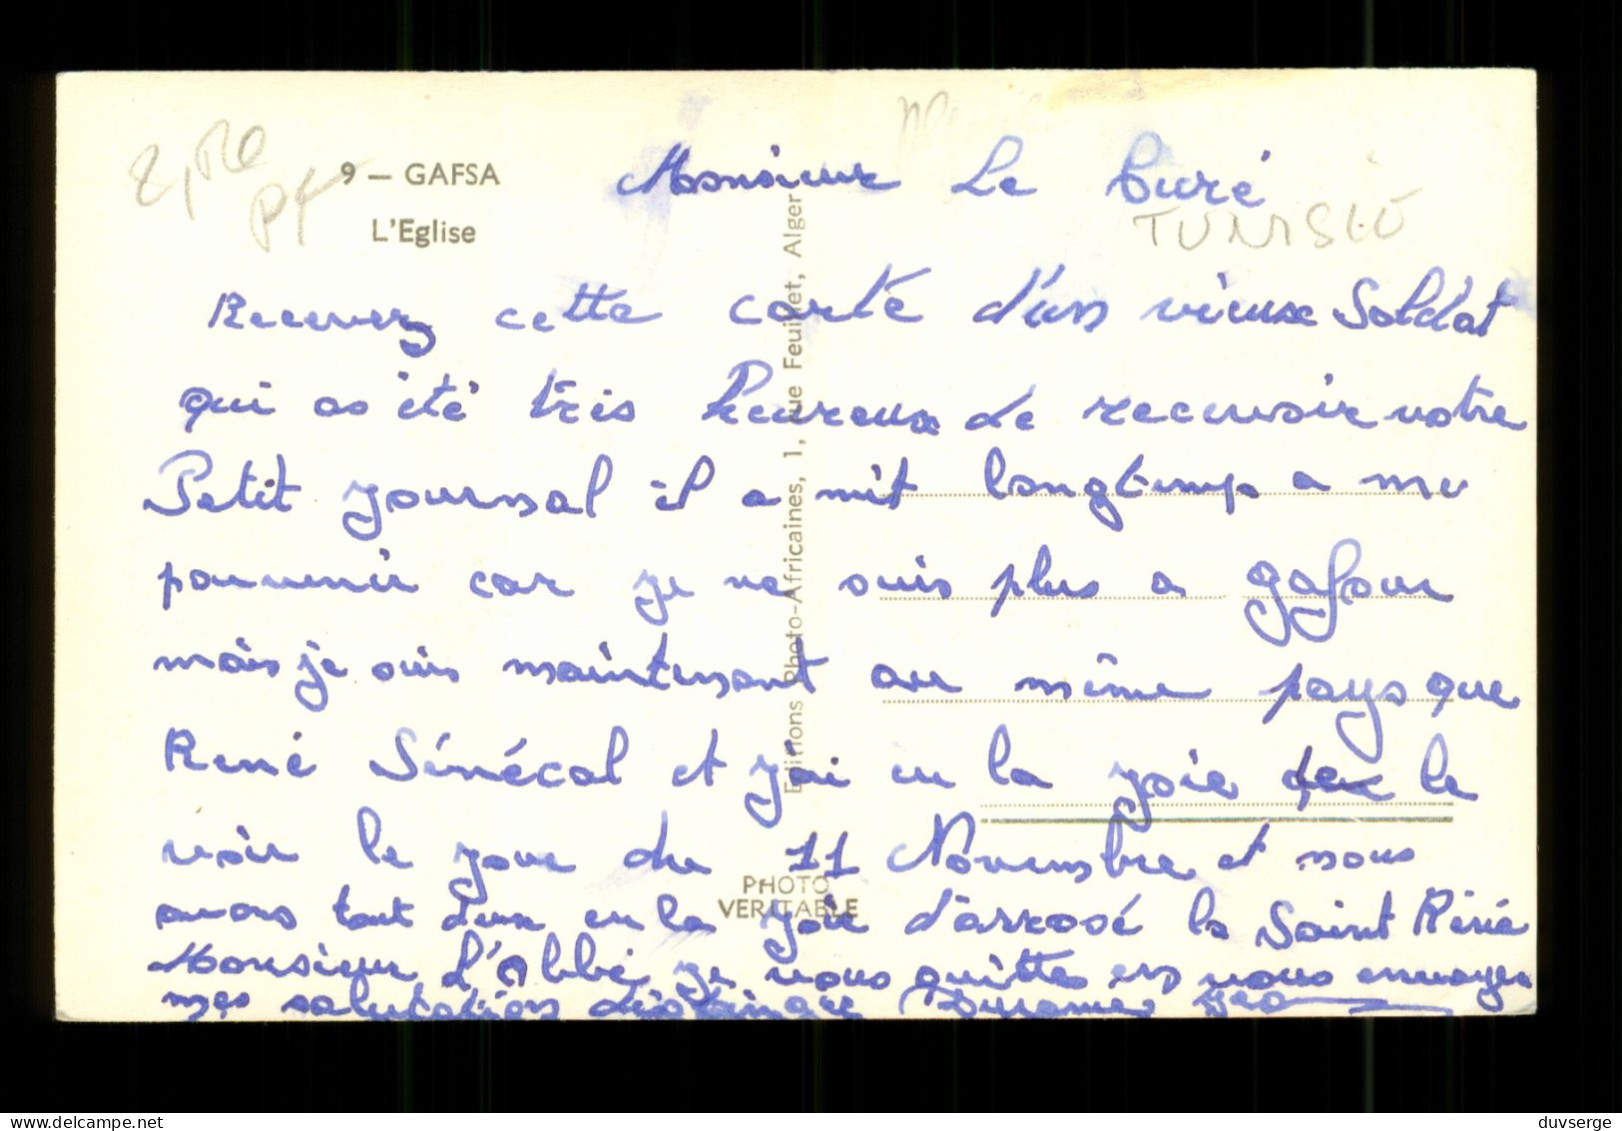 9 — GAFSA
L'Eglise
Monsieur Le Curé
TUNISIE
Recevez cette carte d'un vieux Soldat
qui as été très heureux de recevoir votre
Petit journal il a mit longtemp a me
parvenir car je ne suis plus a gafour
mais je suis maintenant au même pays que
René Sénécal et j'ai eu la joie de le
voir le jour du 11 Novembre et nous
avons tout deux eu la joie d'arrosé la Saint René
Monsieur L'Abbé je vous quitte en vous envoyer
mes salutation distingué
Editions Photo-Africaines, 1, rue Feuillet, Alger
PHOTO
VERITABLE
delcampe.net
duvserge